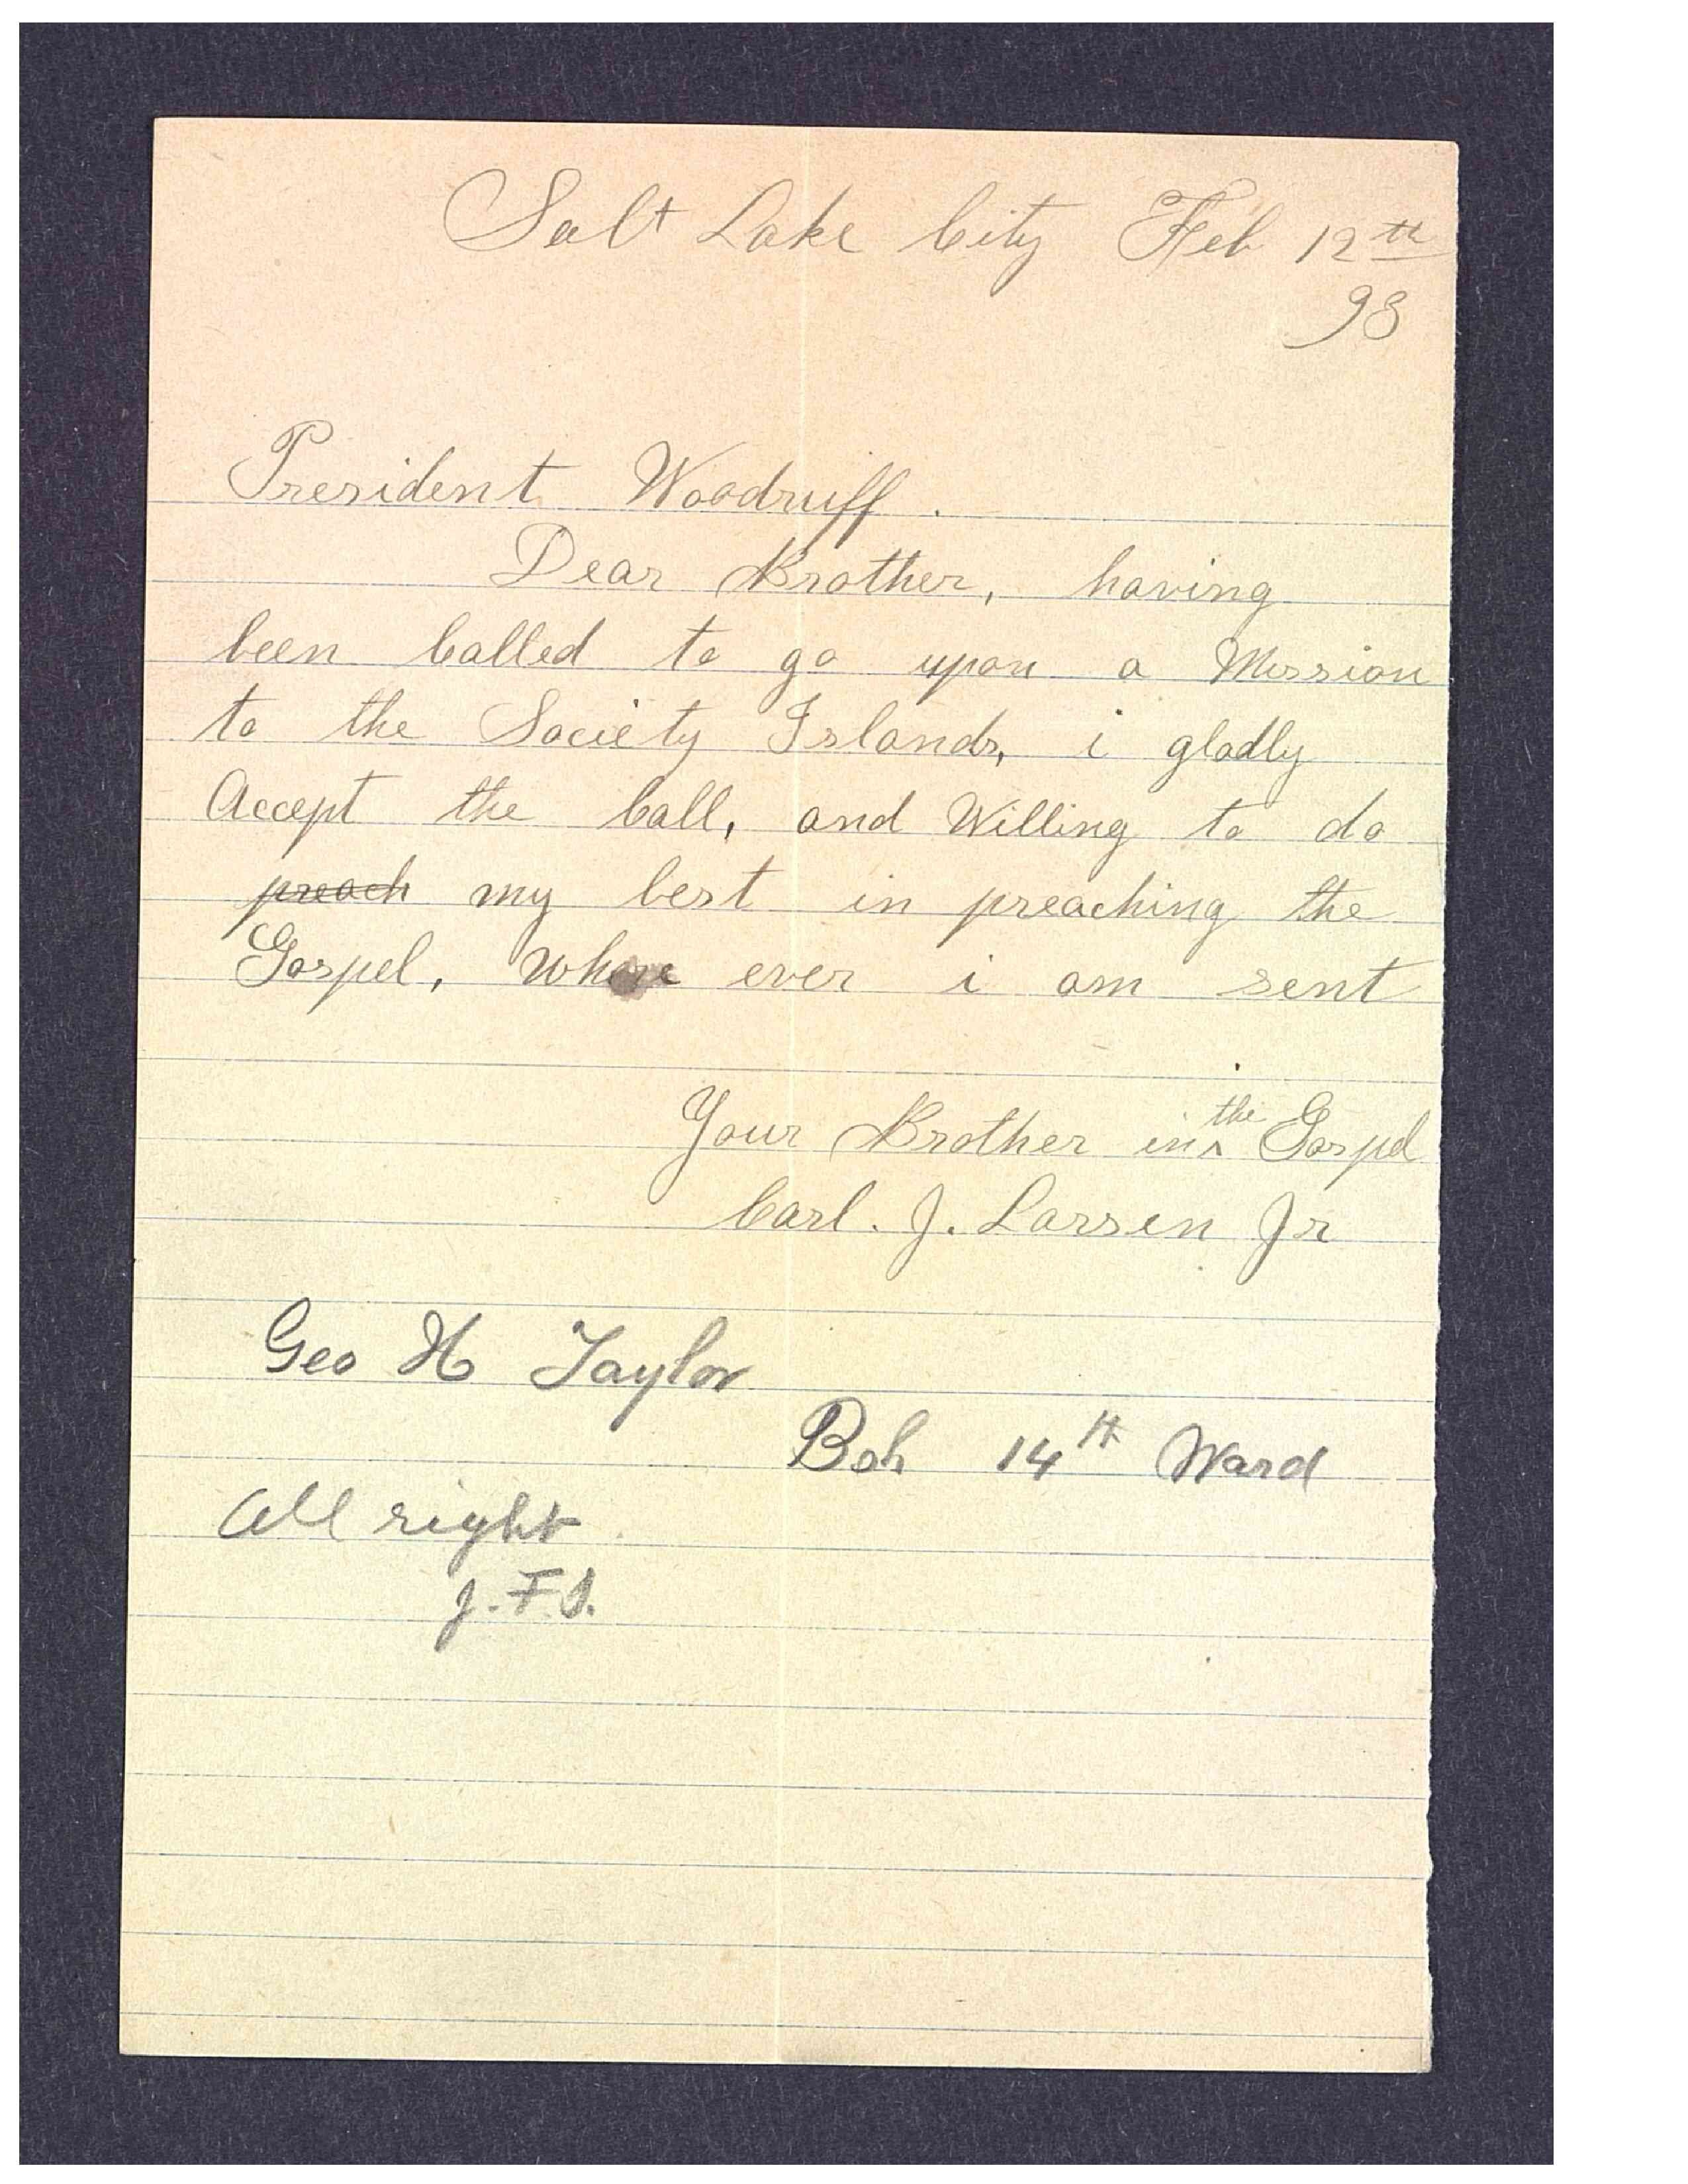 Salt Lake City Feb 12th
98
President Woodruff.
Dear Brother, having
been Called to go upon a Mission
to the Society Islands, i gladly
Accept the Call, and Willing to do
preach my best in preaching the
Gospel, Where ever i am sent
Your Brother in the Gospel
Carl. J. Larsen Jr
Geo H Taylor
Bsh 14th Ward
All right.
J.F.S.